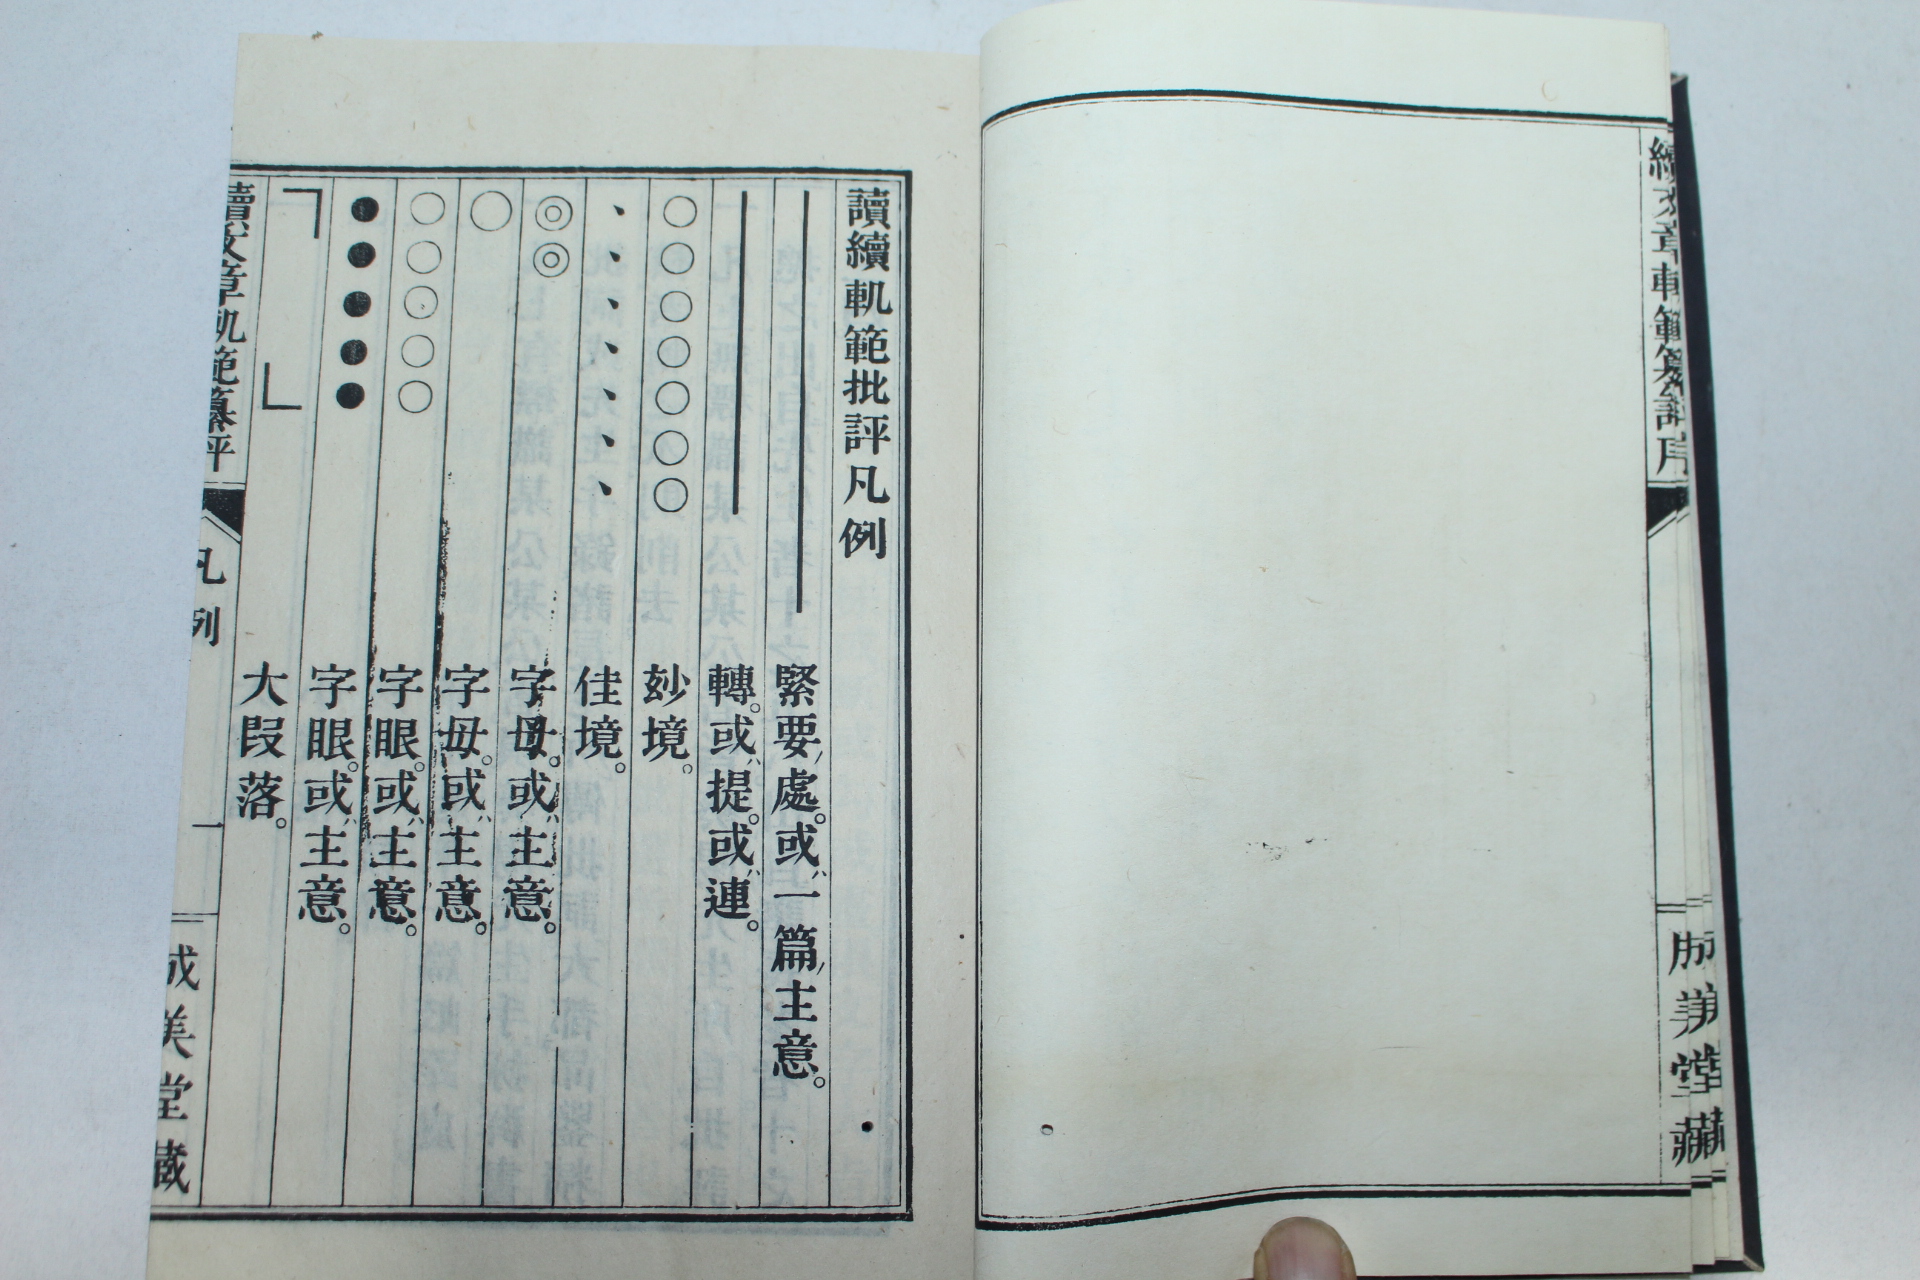 續文章軌範纂評序
成美堂藏
讀續軌範批評凡例
緊要處。或一篇主意。
轉。或提。或連。
○○○○○○○ 玅境。
、、、、、、、 佳境。
◎◎ 字母。或主意。
○ 字母。或主意。
○○○○○ 字眼。或主意。
●●●●● 字眼。或主意。
﹁﹂ 大段落。
續文章軌範纂評
凡例
一
成美堂藏